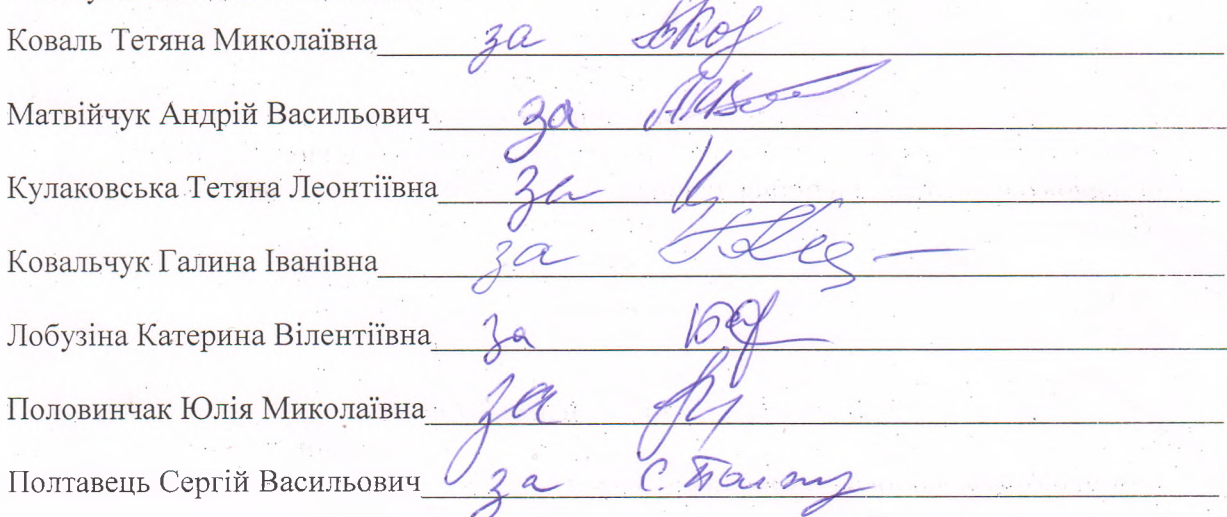 Коваль Тетяна Миколаївна за
Матвійчук Андрій Васильович за
Кулаковська Тетяна Леонтіївна за
Ковальчук Галина Іванівна за
Лобузіна Катерина Вілентіївна за
Половинчак Юлія Миколаївна за
Полтавець Сергій Васильович за